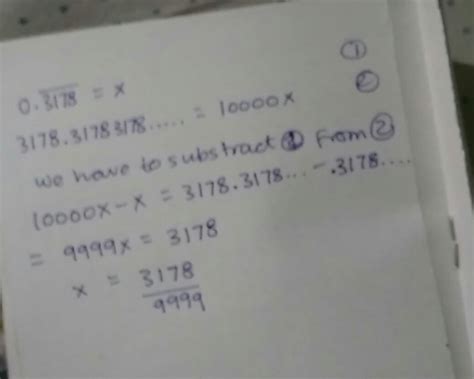 0.3̅1̅7̅8̅ = x ①
3178.31783178..... = 10000x ②
we have to substract ① From ②
10000x-x = 3178.3178... - .3178....
= 9999x = 3178
x = 3178/9999